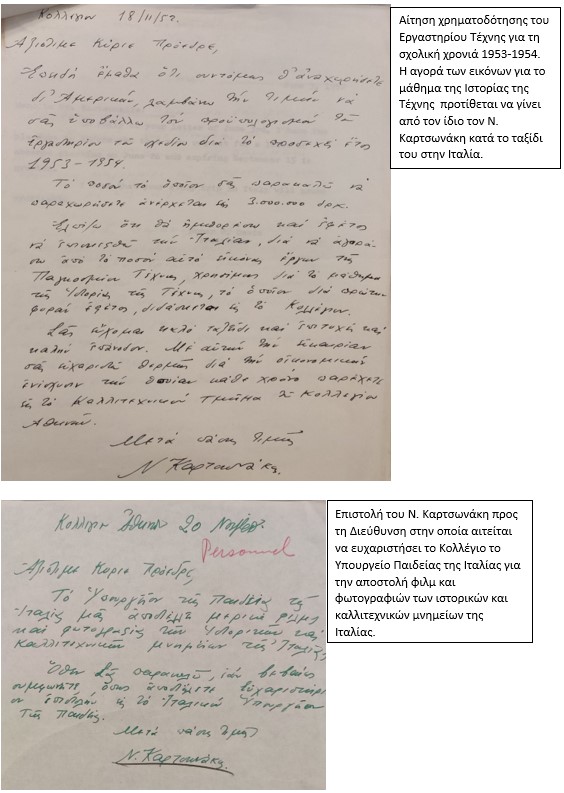 Κολλέγιον 18/11/52.
Ἀξιότιμε Κύριε Πρόεδρε,
Ἐπειδὴ ἔμαθα ὅτι συντόμως θ' ἀναχωρήσετε
δι' Ἀμερικήν, λαμβάνω τὴν τιμὴν νὰ
σᾶς ὑποβάλλω τὸν προϋπολογισμὸ τοῦ
ἐργαστηρίου τοῦ σχεδίου διὰ τὸ προσεχὲς ἔτος
1953-1954.
Τὸ ποσὸν τὸ ὁποῖον σᾶς παρακαλῶ νὰ
παραχωρήσετε ἀνέρχεται εἰς 3.000.000 δρχ.
Ἐλπίζω ὅτι θὰ ἠμπορέσω καὶ ἐφέτος
νὰ ἐπισκεφθῶ τὴν Ἰταλίαν, διὰ νὰ ἀγορά-
σω ἀπὸ τὸ ποσὸν αὐτὸ εἰκόνας ἔργων τῆς
Παγκοσμίου Τέχνης, χρησίμους διὰ τὸ μάθημα
τῆς Ἱστορίας τῆς Τέχνης, τὸ ὁποῖον διὰ πρώτην
φορὰν ἐφέτος, διδάσκεται εἰς τὸ Κολλέγιον.
Σᾶς εὔχομαι καλὸ ταξείδι καὶ ἐπιτυχῆ καὶ
καλὴν ἐπάνοδον. Μὲ αὐτὴν τὴν εὐκαιρίαν
σᾶς εὐχαριστῶ θερμῶς διὰ τὴν οἰκονομικὴν
ἐνίσχυσιν τὴν ὁποίαν κάθε χρόνο παρέχετε
εἰς τὸ Καλλιτεχνικὸν Τμῆμα τοῦ Κολλεγίου
Ἀθηνῶν.
Μετὰ πάσης τιμῆς
Ν. Καρτσωνάκης.
Αίτηση χρηματοδότησης του
Εργαστηρίου Τέχνης για τη
σχολική χρονιά 1953-1954.
Η αγορά των εικόνων για το
μάθημα της Ιστορίας της
Τέχνης προτίθεται να γίνει
από τον ίδιο τον Ν.
Καρτσωνάκη κατά το ταξίδι
του στην Ιταλία.
Κολλέγιον Ἀθηνῶν 20
Personnel
Ἀξιότιμε Κύριε Πρόεδρε,
Τὸ Ὑπουργεῖον τῆς Παιδείας τῆς
Ἰταλίας μᾶς ἀπέστειλε μερικὰ φιλμς
καὶ φωτογραφίας τῶν Ἱστορικῶν καὶ
Καλλιτεχνικῶν μνημείων τῆς Ἰταλίας.
Ὅθεν Σᾶς παρακαλῶ, ἐὰν βεβαίως
συμφωνῆτε, ὅπως ἀποστείλετε εὐχαριστήρι-
ον ἐπιστολὴν εἰς τὸ Ἰταλικὸν Ὑπουργεῖον
τῆς Παιδείας.
Μετὰ πάσης τιμῆς
Ν. Καρτσωνάκης.
Επιστολή του Ν. Καρτσωνάκη προς
τη Διεύθυνση στην οποία αιτείται
να ευχαριστήσει το Κολλέγιο το
Υπουργείο Παιδείας της Ιταλίας για
την αποστολή φιλμ και
φωτογραφιών των ιστορικών και
καλλιτεχνικών μνημείων της
Ιταλίας.